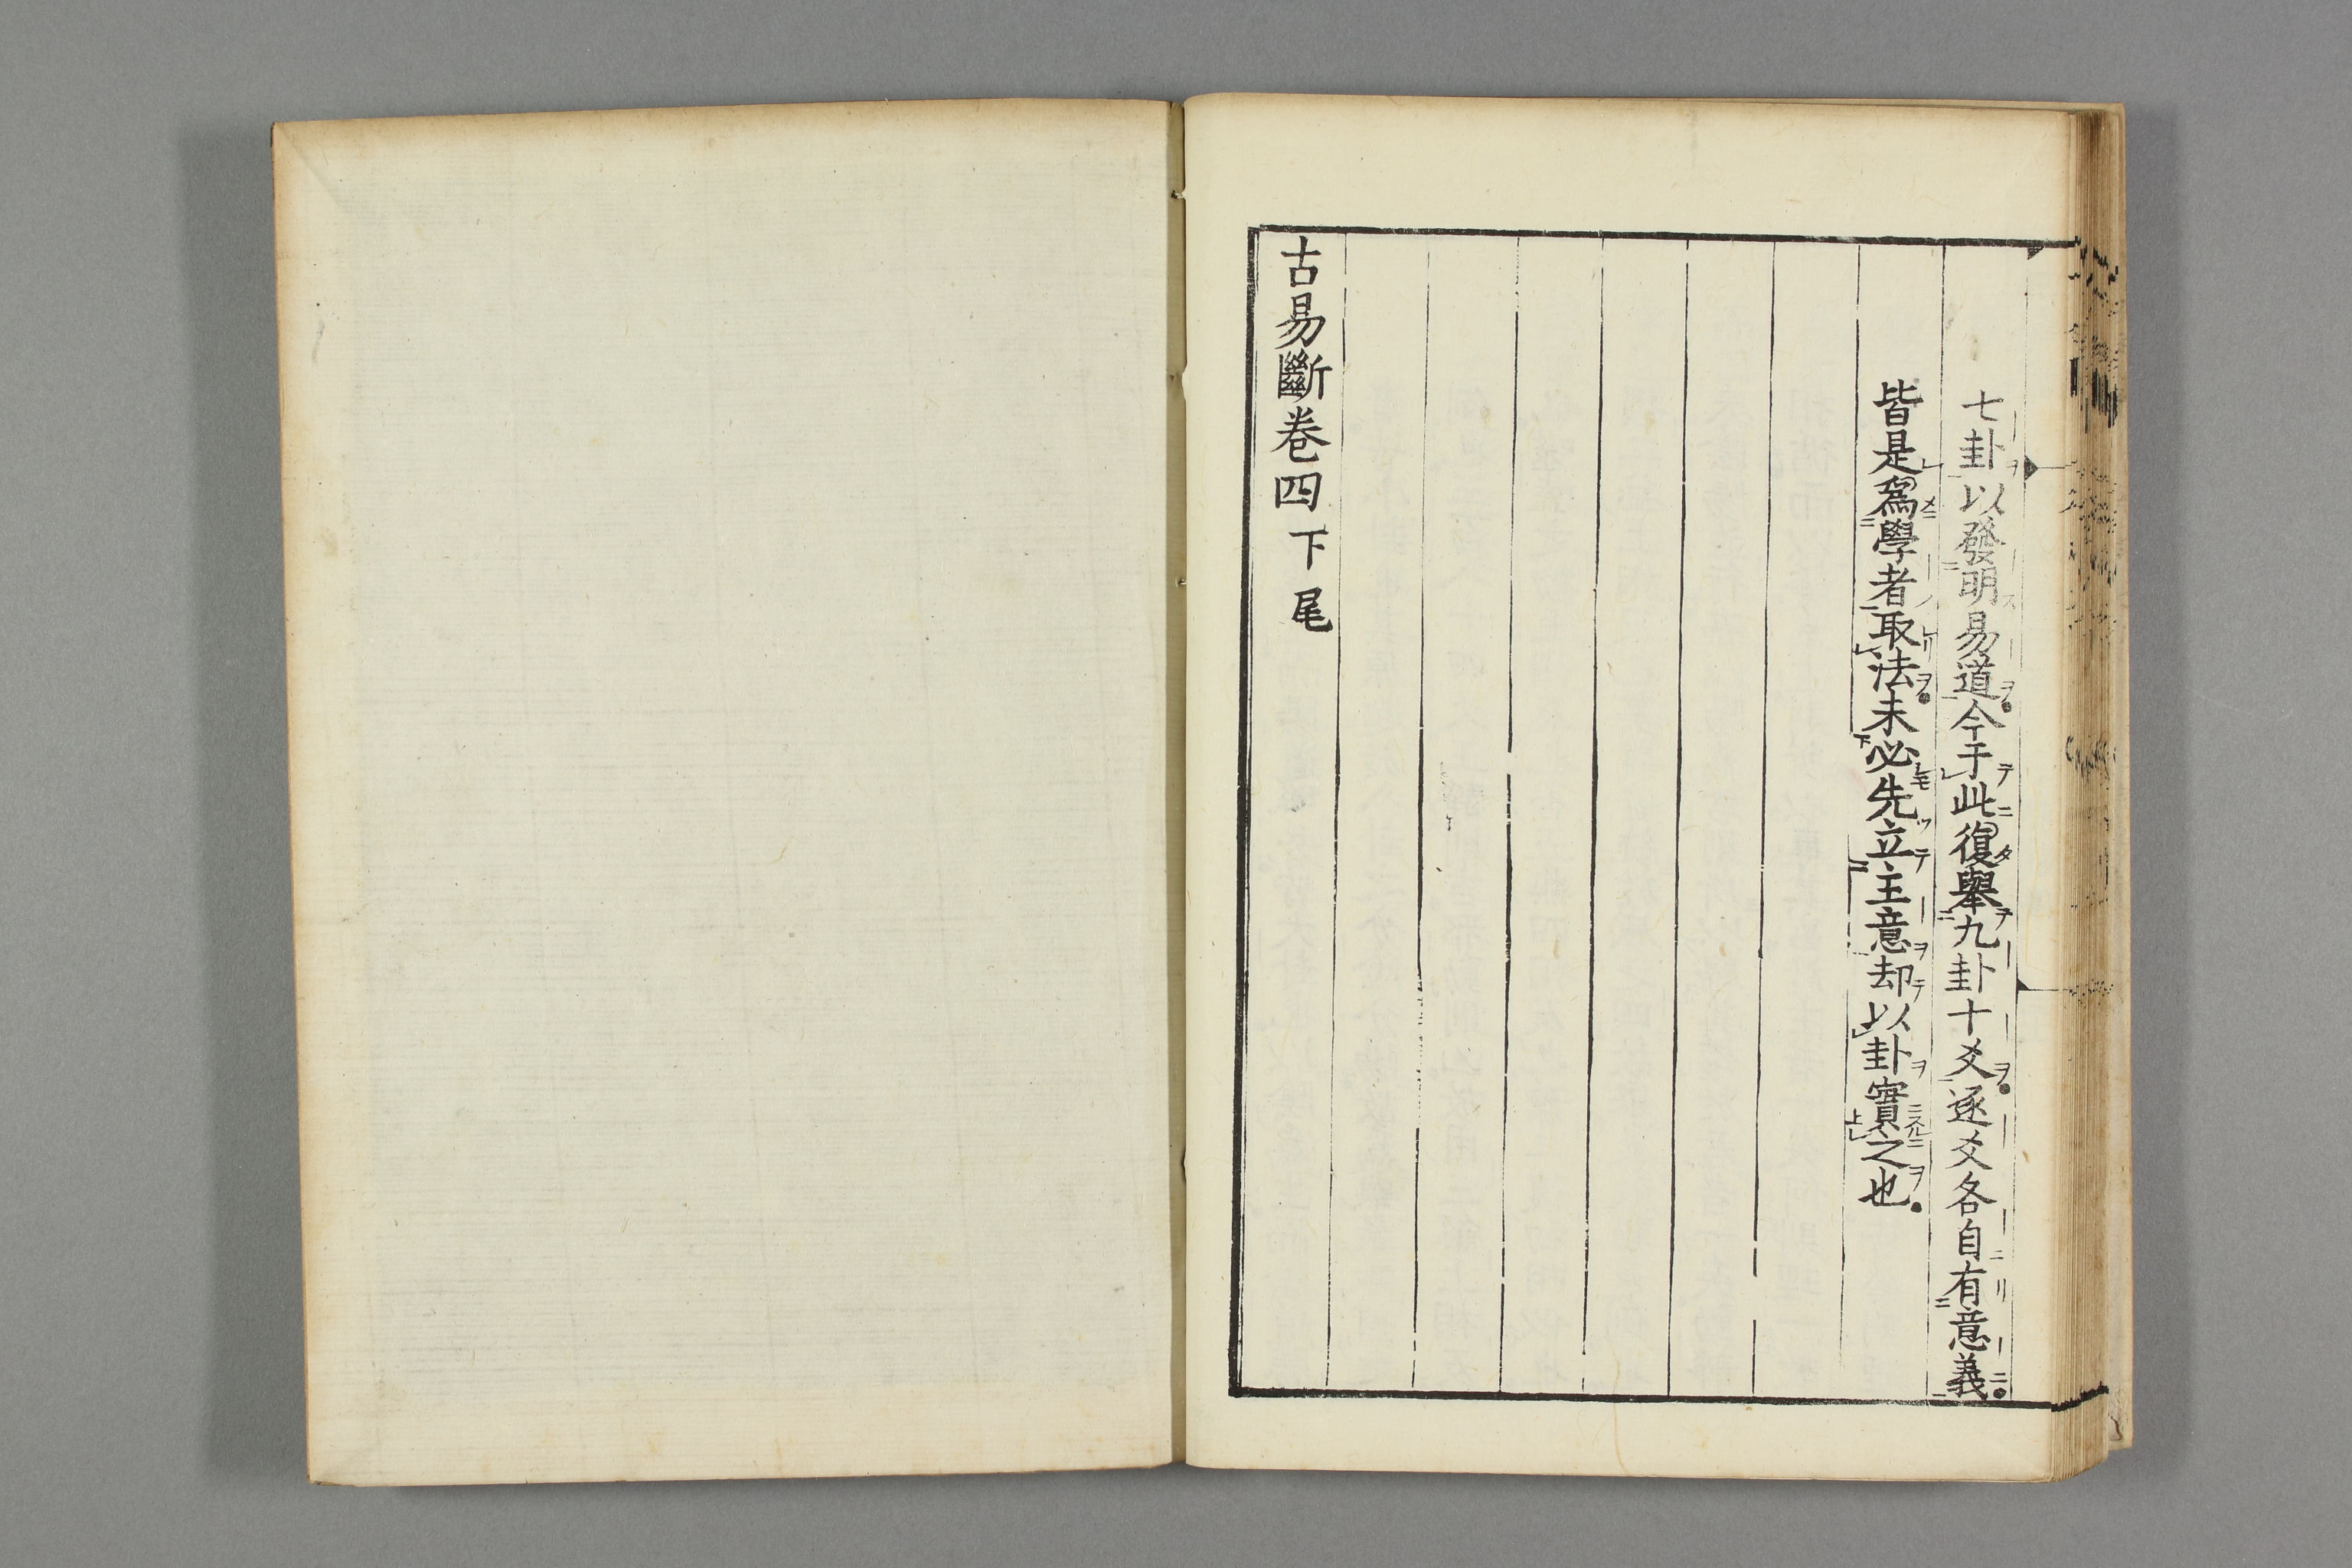 七卦以發明易道今于此復舉九卦十爻逐爻各自有意義
皆是爲學者取法未必先立主意却以卦實之也
古易斷卷四下尾